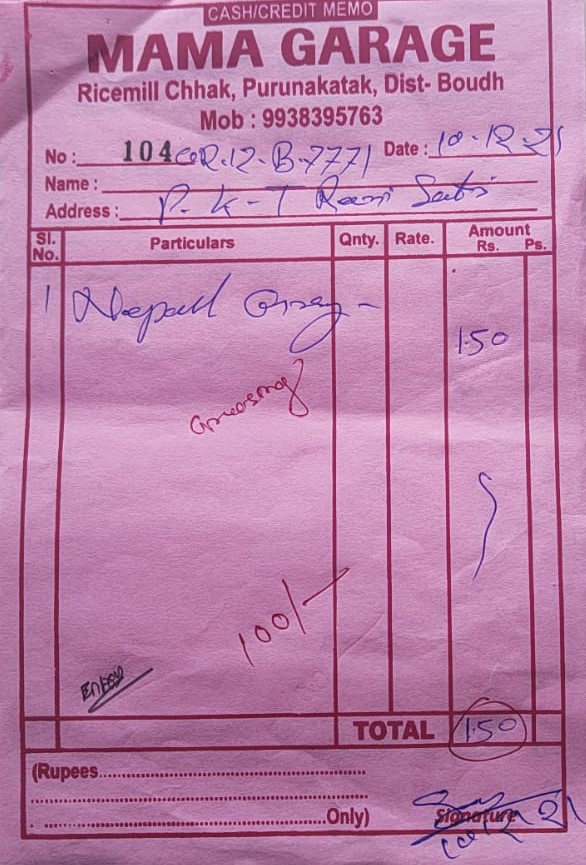 CASH/CREDIT MEMO
MAMA GARAGE
Ricemill Chhak, Purunakatak, Dist- Boudh
Mob : 9938395763
No : 104 OR.12-B-7771 Date : 10-12-21
Name :
Address : P. K - T
Sl. No. Particulars Qnty. Rate. Amount Rs. Ps.
1 Nepall 150
100/-
Entry
TOTAL 150
(Rupees
Only) Signature